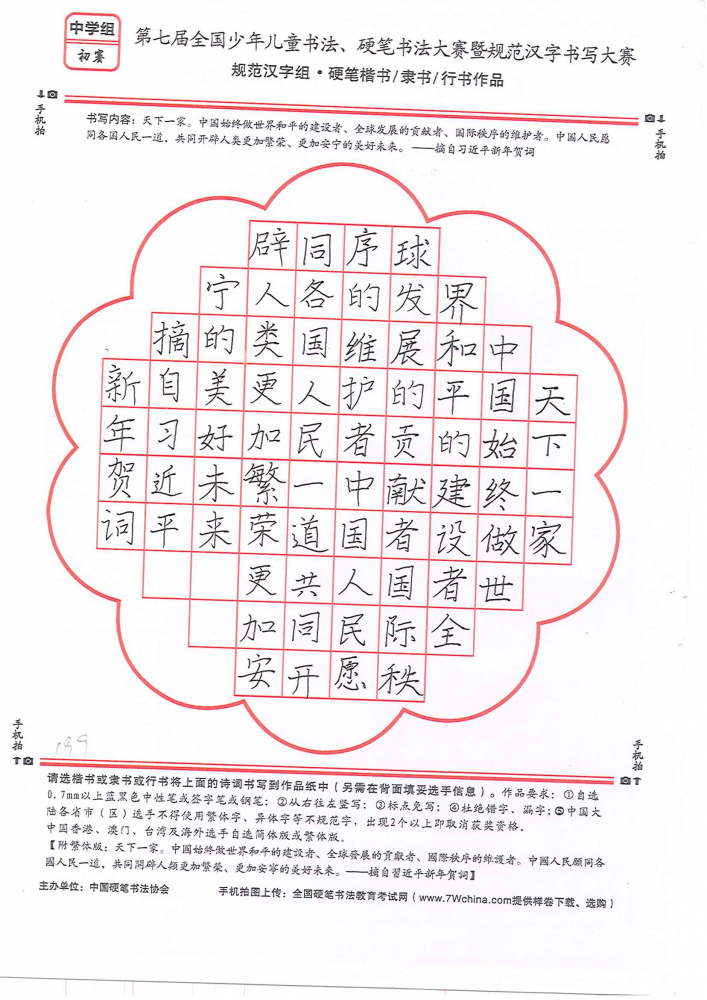 中学组
初赛
第七届全国少年儿童书法、硬笔书法大赛暨规范汉字书写大赛
规范汉字组·硬笔楷书/隶书/行书作品
手机拍
手机拍
书写内容：天下一家。中国始终做世界和平的建设者、全球发展的贡献者、国际秩序的维护者。中国人民愿
同各国人民一道，共同开辟人类更加繁荣、更加安宁的美好未来。——摘自习近平新年贺词
天下一家
中国始终做世
界和平的建设者全
球发展的贡献者国际秩
序的维护者中国人民愿
同各国人民一道共同开
辟人类更加繁荣更加安
宁的美好未来
摘自习近平
新年贺词
199
手机拍
手机拍
请选楷书或隶书或行书将上面的诗词书写到作品纸中（另需在背面填妥选手信息）。作品要求：①自选
0.7mm以上蓝黑色中性笔或签字笔或钢笔；②从右往左竖写；③标点免写；④杜绝错字、漏字；⑤中国大
陆各省市（区）选手不得使用繁体字、异体字等不规范字，出现2个以上即取消获奖资格。
中国香港、澳门、台湾及海外选手自选简体版或繁体版。
【附繁体版：天下一家。中國始終做世界和平的建設者、全球發展的貢獻者、國際秩序的維護者。中國人民願同各
國人民一道，共同開辟人類更加繁榮、更加安寧的美好未來。——摘自習近平新年賀詞】
主办单位：中国硬笔书法协会
手机拍图上传：全国硬笔书法教育考试网（www.7Wchina.com提供样卷下载、选购）